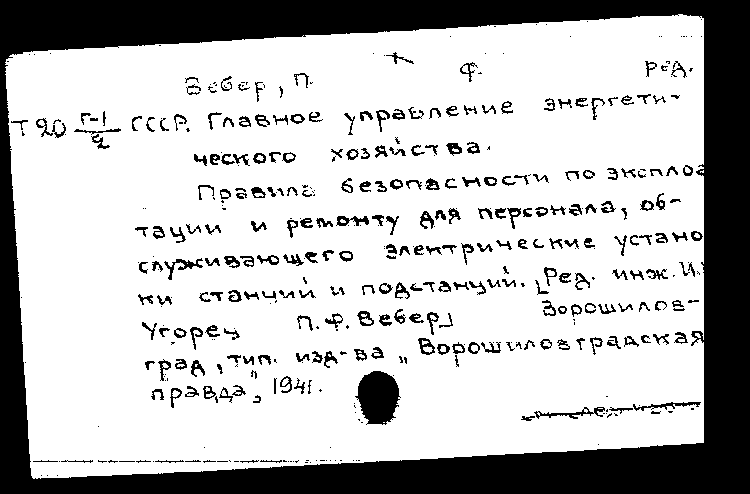 Вебер, П. Ф. ред.
Т 20 Г-1/2 СССР. Главное управление энергети-
ческого хозяйства.
Правила безопасности по эксплоа
тации и ремонту для персонала, об-
служивающего электрические устано
ки станций и подстанций. [Ред. инж. И.
Угорец П. Ф. Вебер] Ворошилов-
град, тип. изд-ва „Ворошиловградская
правда", 1941.